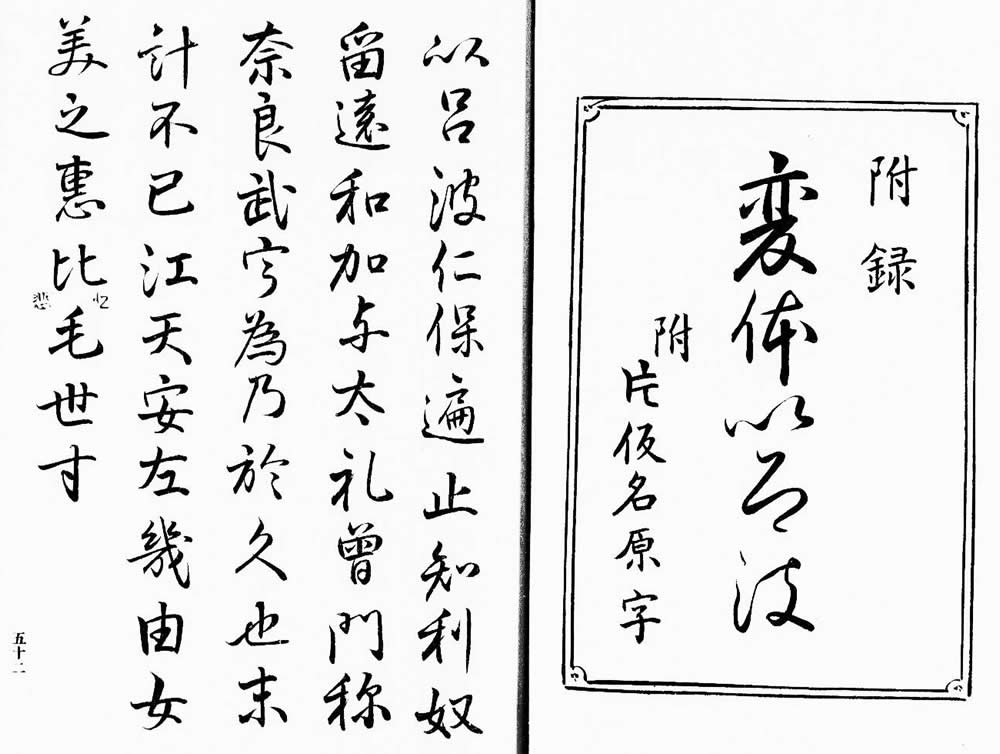 附録
変体以呂波
附
片仮名原字
以呂波仁保遍止知利奴
留遠和加与太礼曽門称
奈良武宇為乃於久也末
計不已江天安左幾由女
美之恵比毛世寸
悲
五十二